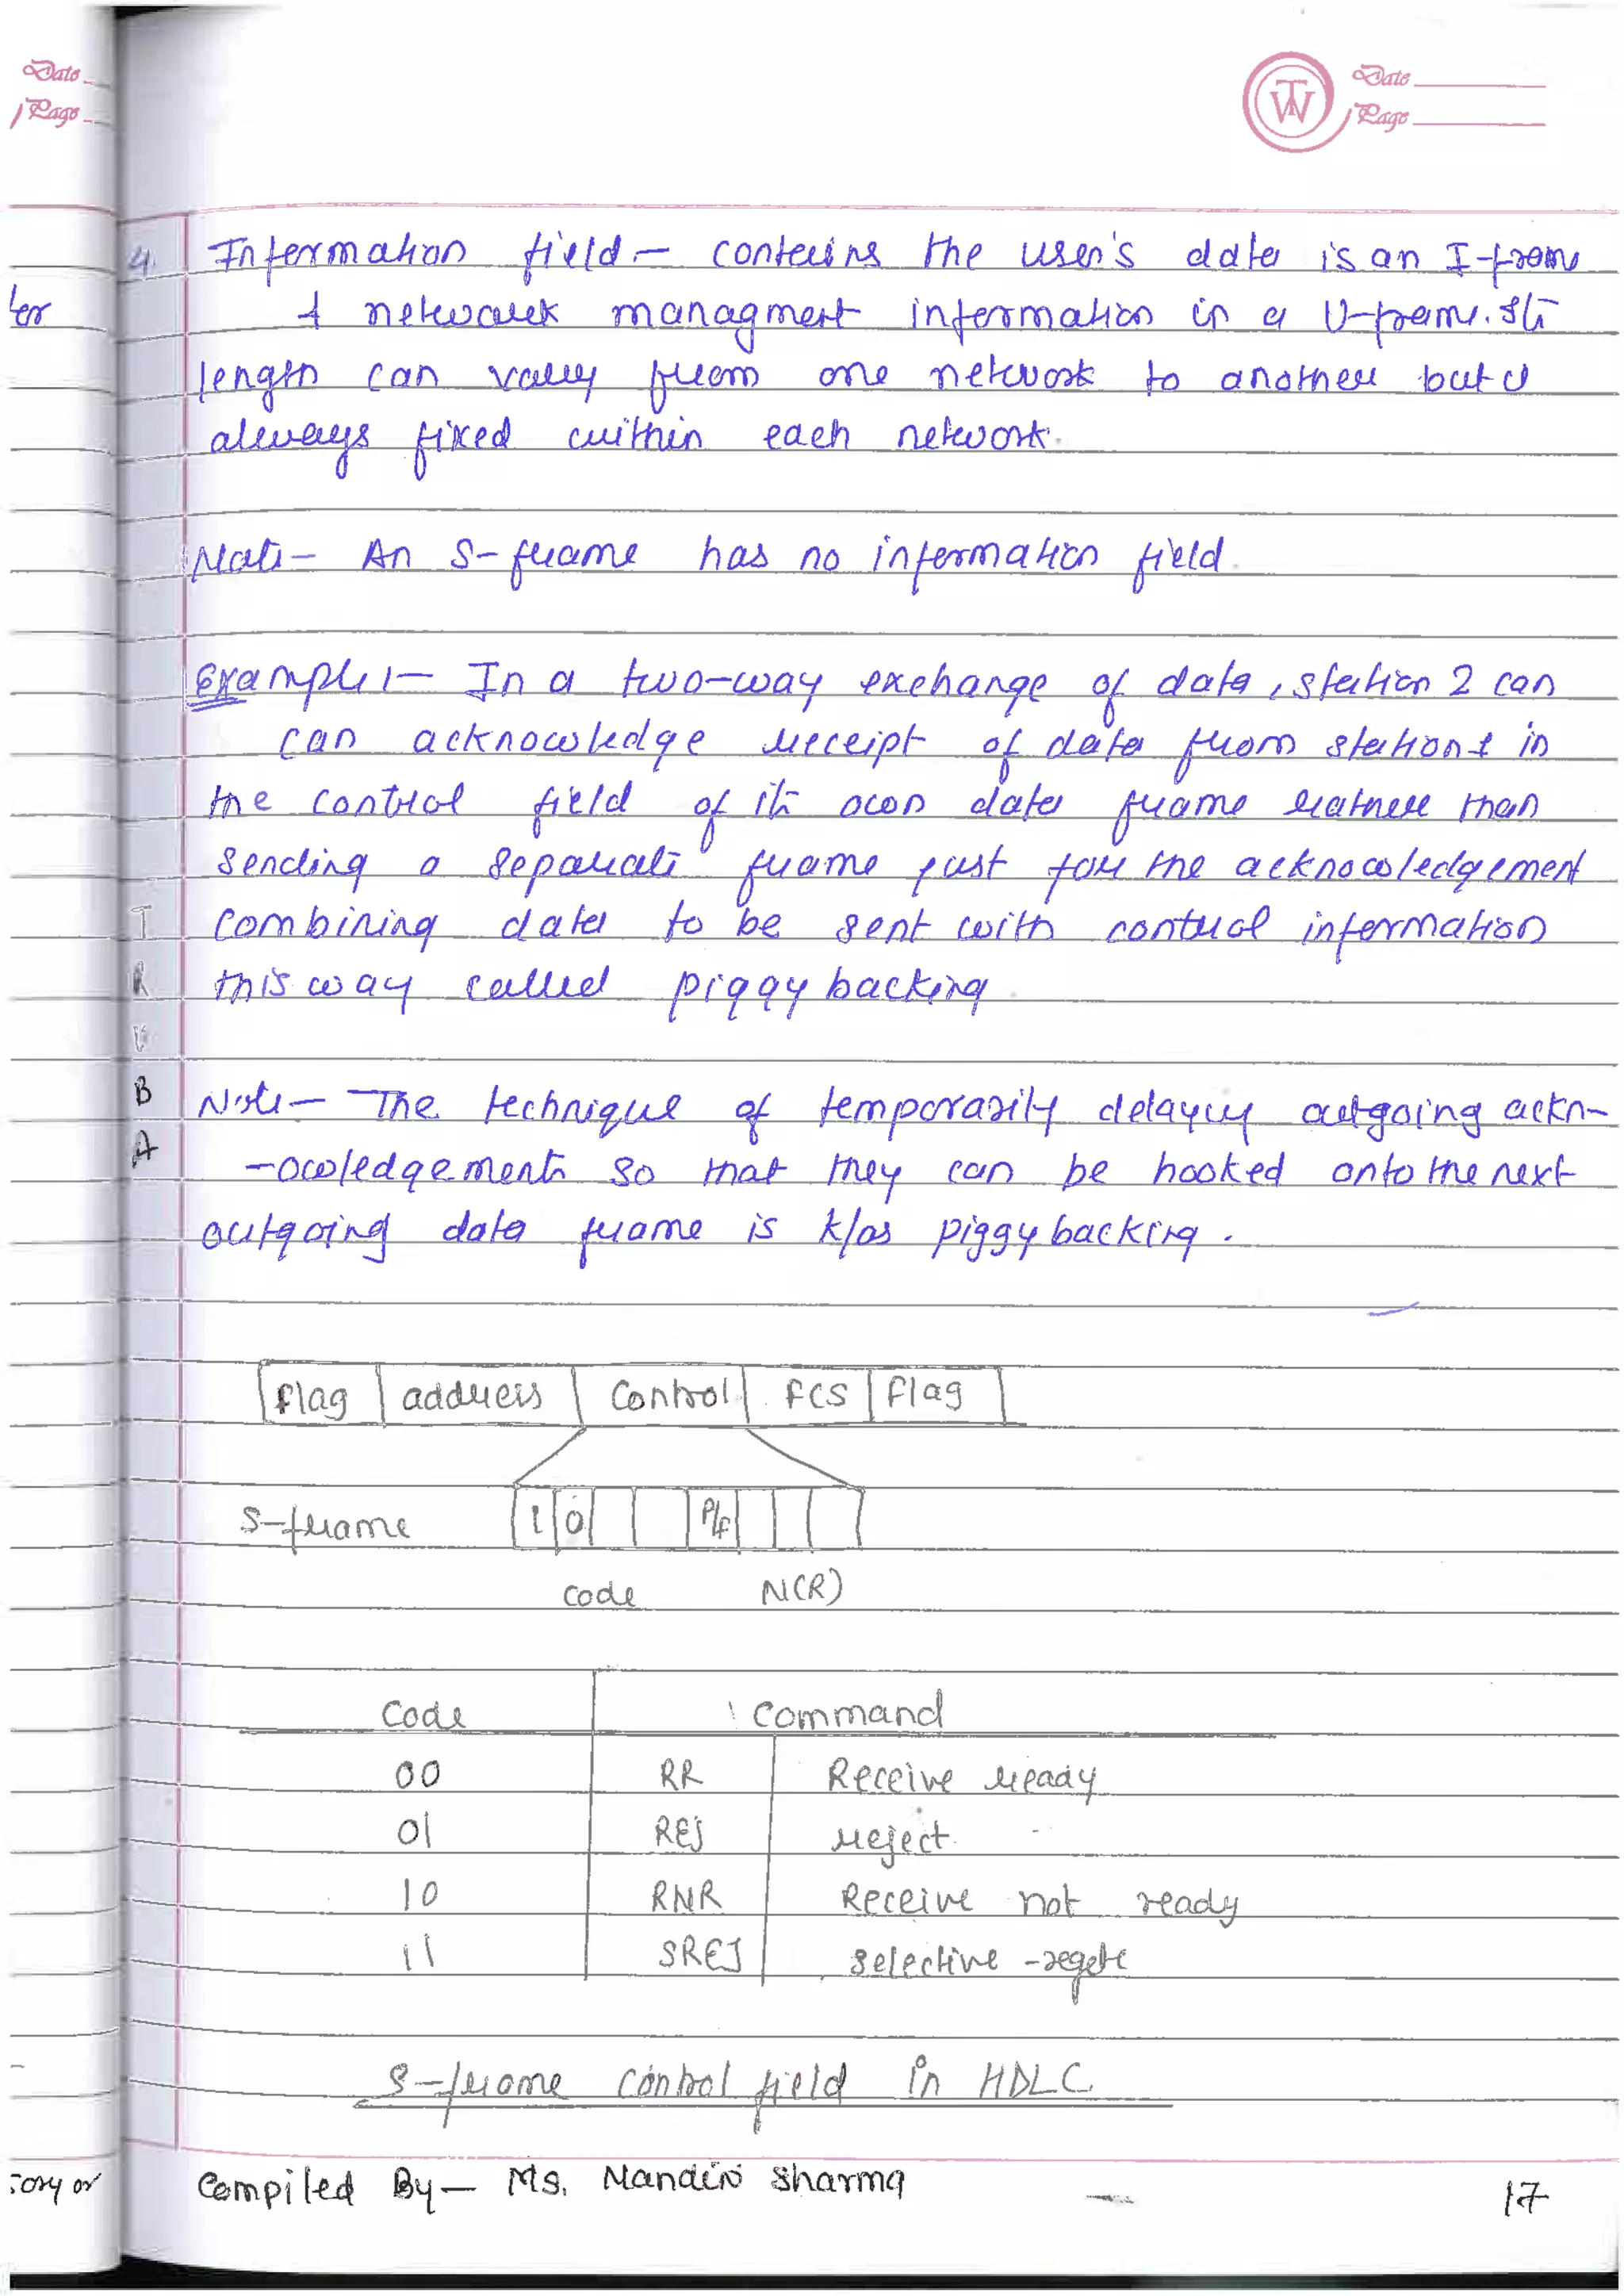 Date
Page
Date
Page
4. Information field - contains the user's data is an I-frame
& network managment information in a U-frame. Its
length can vary from one network to another but
always fixed within each network.
er
Note - An S-frame has no information field.
Example :- In a two-way exchange of data, station 2 can
can acknowledge receipt of data from station 1 in
the control field of its own data frame rather than
sending a separate frame just for the acknowledgement
combining data to be sent with control information
this way called piggybacking
T
R
U
B
A
Note - The technique of temporarily delaying outgoing ackn-
-owledgements so that they can be hooked onto the next
outgoing data frame is k/as piggybacking.
flag address Control FCS flag
S-frame 1 0 P/F
code N(R)
Code Command
00 RR Receive ready
01 REJ reject
10 RNR Receive not ready
11 SREJ selective -
S-frame control field in HDLC
ory or
Compiled By - Ms. Nandini Sharma
17